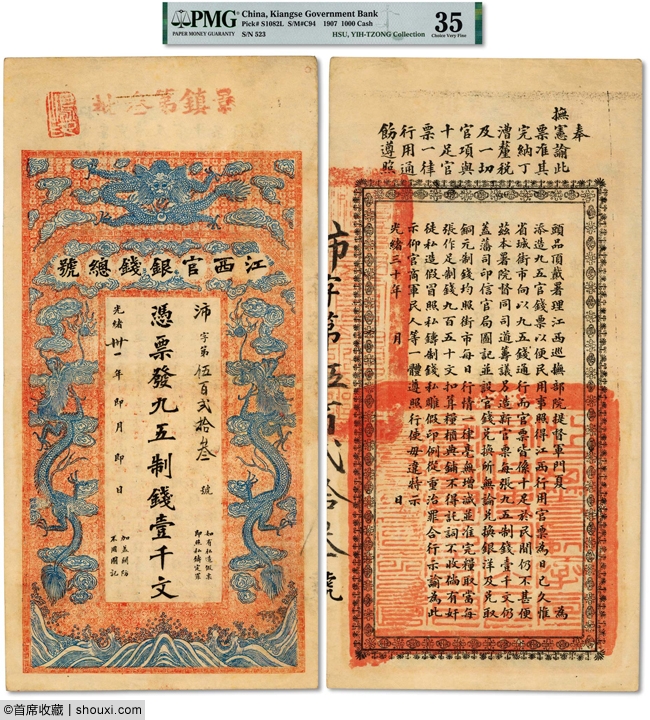 PMG
PAPER MONEY GUARANTY
China, Kiangse Government Bank
Pick# S1082L S/M#C94 1907 1000 Cash
S/N 523
HSU, YIH-TZONG Collection
35
Choice Very Fine
景鎮第叁批
江西官銀錢總號
沛字第伍百弍拾叁號
如有私造假票
即照私鑄定罪
憑票發九五制錢壹千文
光緒卅一年即月即日
奉
撫憲諭此
票准其
完納丁
漕釐税
及一切
官項與
十足官
票一律
行用通
飭遵照
頭品頂戴署理江西巡撫部院提督軍門夏 為
添造九五官錢票以便民用事照得江西行用官票為日已久惟
省城街市向以九五錢通行而官票皆係十足於民間仍不甚便
茲本署院督同司道籌議另造新官票每張九五制錢壹千文仍
蓋藩司印信官局圖記並設官錢兌換所無論兌換銀洋及兌取
銅元制錢均照街市每日行情一律毫無增減並准完糧取當每
張作足制錢九百五十文扣算糧櫃典鋪不得託詞不收倘有奸
徒私造假冒照私鑄制錢私雕假印例從重治罪合行示諭為此
示仰官商軍民人等一體遵照行使毋違特示
光緒三十年 月 日
沛字第伍百弍拾叁號
©首席收藏 | shouxi.com